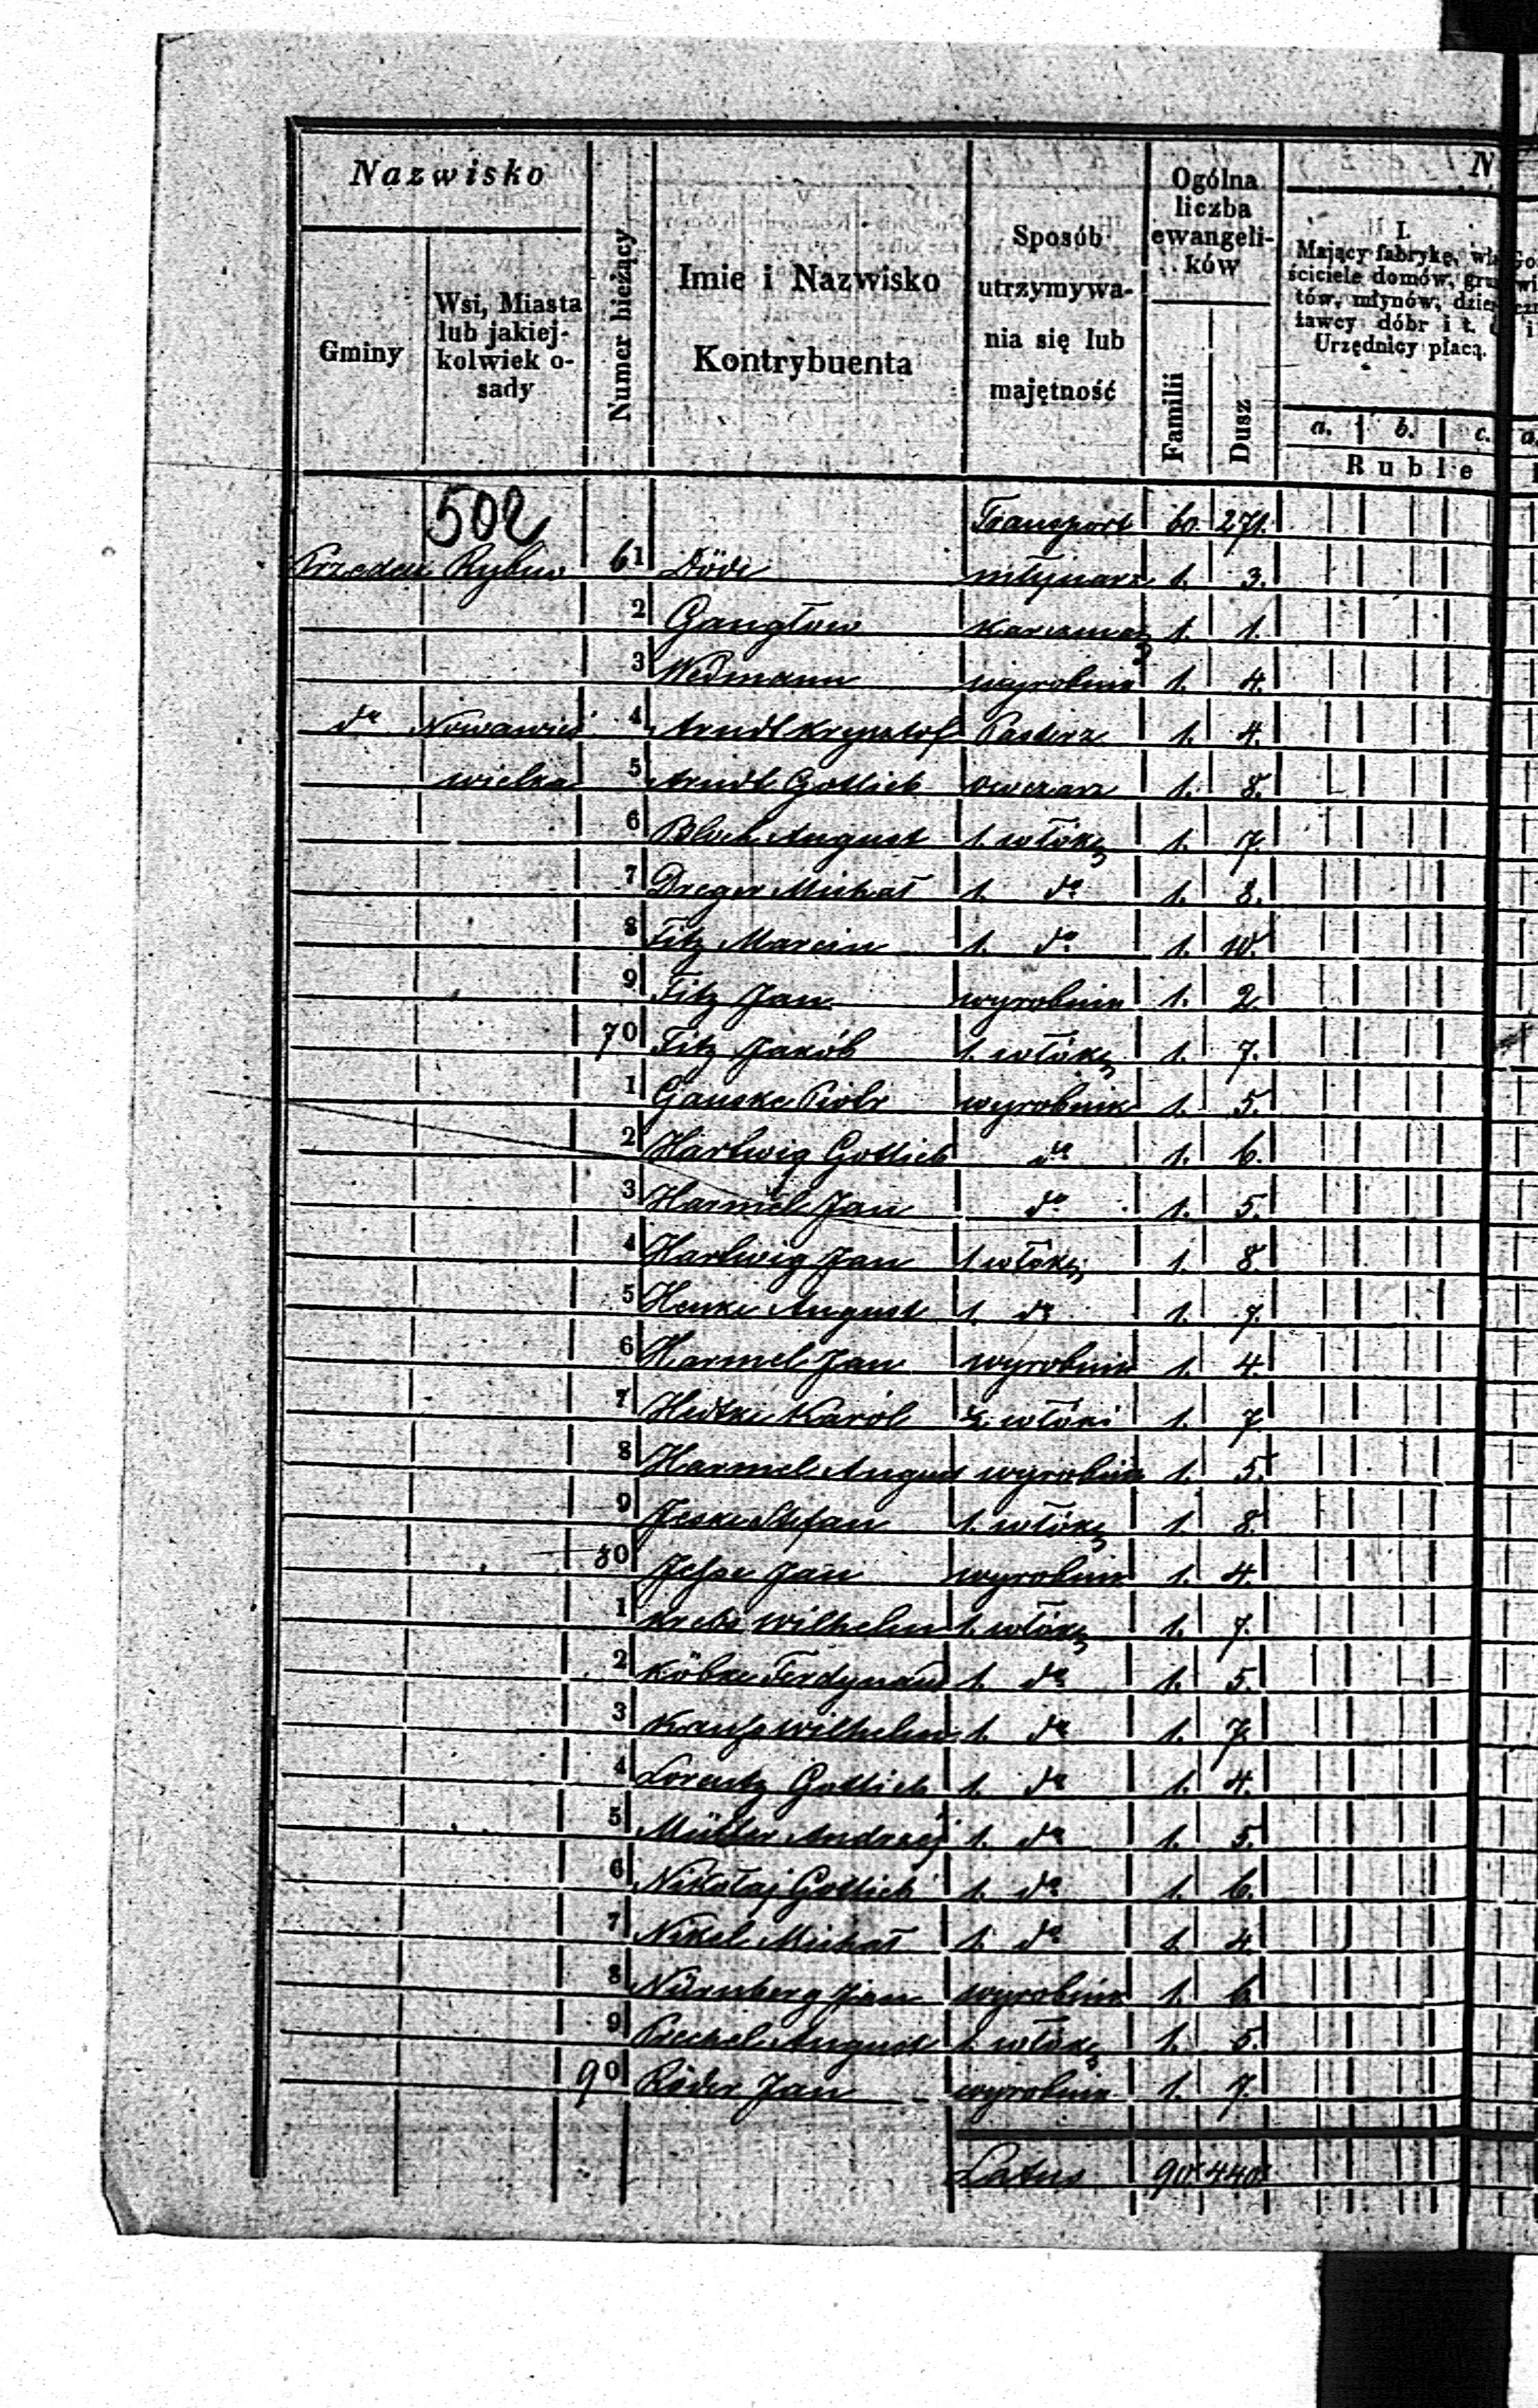 Nazwisko
Gminy
Wsi, Miasta
lub jakiej-
kolwiek o-
sady
Numer bieżący
Imie i Nazwisko
Kontrybuenta
Sposób
utrzymywa-
nia się lub
majętność
Ogólna
liczba
ewangeli-
ków
Familii
Dusz
N
I.
Mający fabrykę, wła
ściciele domów, grun
tów, młynów, dzier
ławcy dóbr i t. d
Urzędnicy płacą.
a. b. c.
Ruble
502 Transport 60. 271.
Rybno 61 Döde młynarz 1. 3.
2 Gangłow Karczmarz 1. 1.
3 Wedmann wyrobnik 1. 4.
do Nowawieś 4 Arndt Krysztof Pasterz 1. 4.
wielka 5 Arndt Gottlieb owczarz 1. 8.
6 Bloch August 1. włókę 1. 7.
7 Dreger Michał 1. do 1. 8.
8 Fitz Marcin 1. do 1. 10.
9 Fitz Jan wyrobnik 1. 2.
70 Fitz Jakób 1. włókę 1. 7.
1 Ganske Piotr wyrobnik 1. 5.
2 Hartwig Gottlieb do 1. 6.
3 Harmel Jan do 1. 5.
4 Hartwig Jan 1 włókę 1. 8.
5 Henke August 1. do 1. 7.
6 Harmel Jan wyrobnik 1. 4.
7 Hedtke Karól włóki 1. 7.
8 Harmel August wyrobnik 1. 5.
9 Jeske Stefan 1. włókę 1. 8.
80 Jesse Jan wyrobnik 1. 4.
1 Krebs Wilhelm 1. włókę 1. 7.
2 Köbke Ferdynand 1. do 1. 5.
3 Krauss Wilhelm 1. do 1. 7.
4 Lorentz Gottlieb 1. do 1. 4.
5 Müller Andrzej 1. do 1. 5.
6 Nikołaj Gottlieb 1. do 1. 6.
7 Nikel Michał 1. do 1. 4.
8 Nürnberg Jan wyrobnik 1. 6.
9 Prechel August 1. włókę 1. 5.
90 Röder Jan wyrobnik 1. 7.
Latus 90. 440.